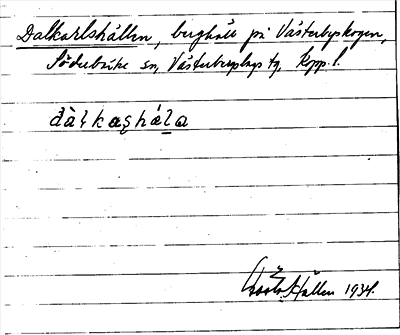 Dalkarlshällen, berghäll på Västerbyskogen,
Söderbärke sn, Västerbergslags tg, Kopp. l.
dàɫkaʂhála
Hallen 1934.